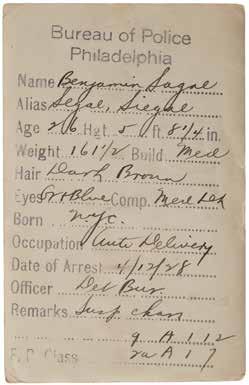 Bureau of Police
Philadelphia
Name Benjamin Sagal
Alias Segal, Siegal
Age 26 Hgt. 5 ft. 8 1/4 in.
Weight 161 1/2 Build Med
Hair Dark Brown
Eyes Gr & Blue Comp. Med Dk
Born nyc.
Occupation Auto Delivery
Date of Arrest 4/12/28
Officer Det Bur.
Remarks Susp char
9 A 1 12
F. P. Class A 1 7